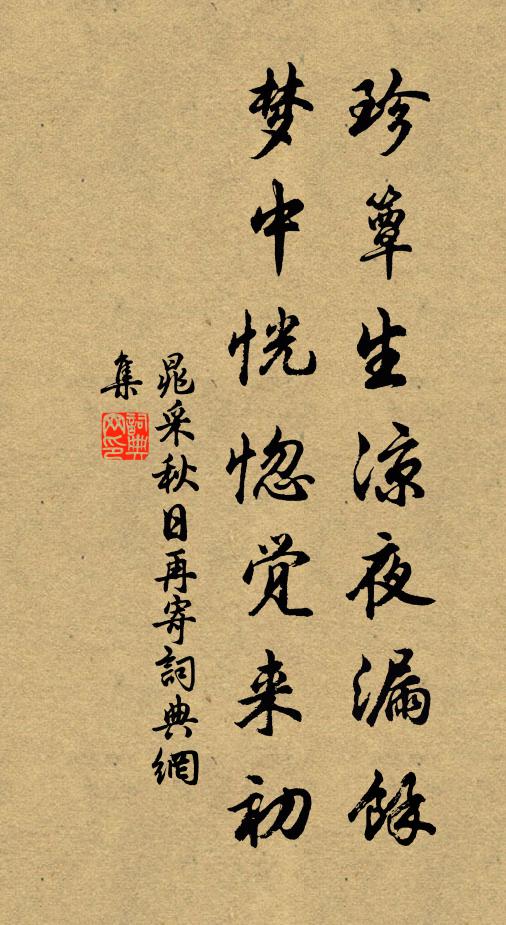 珍簟生凉夜漏馀
梦中恍惚觉来初
晁采秋日再寄詞典網
集
詞典網印